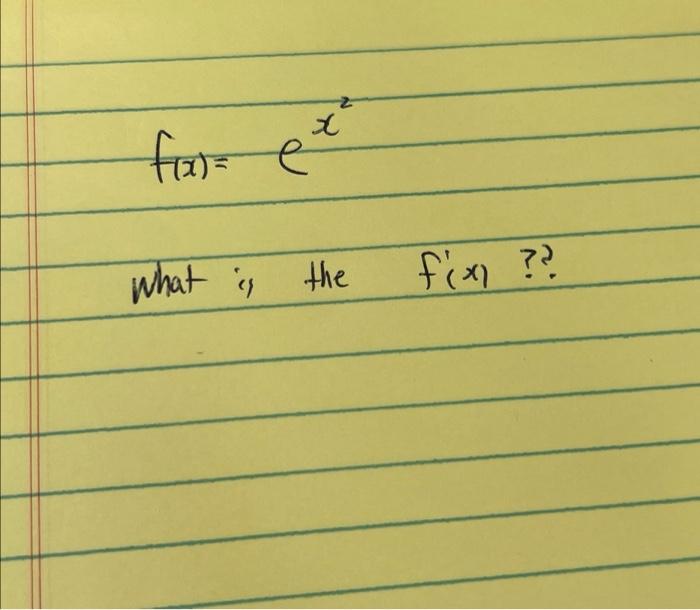 f(x) = e^x^2
what is the f'(x) ??